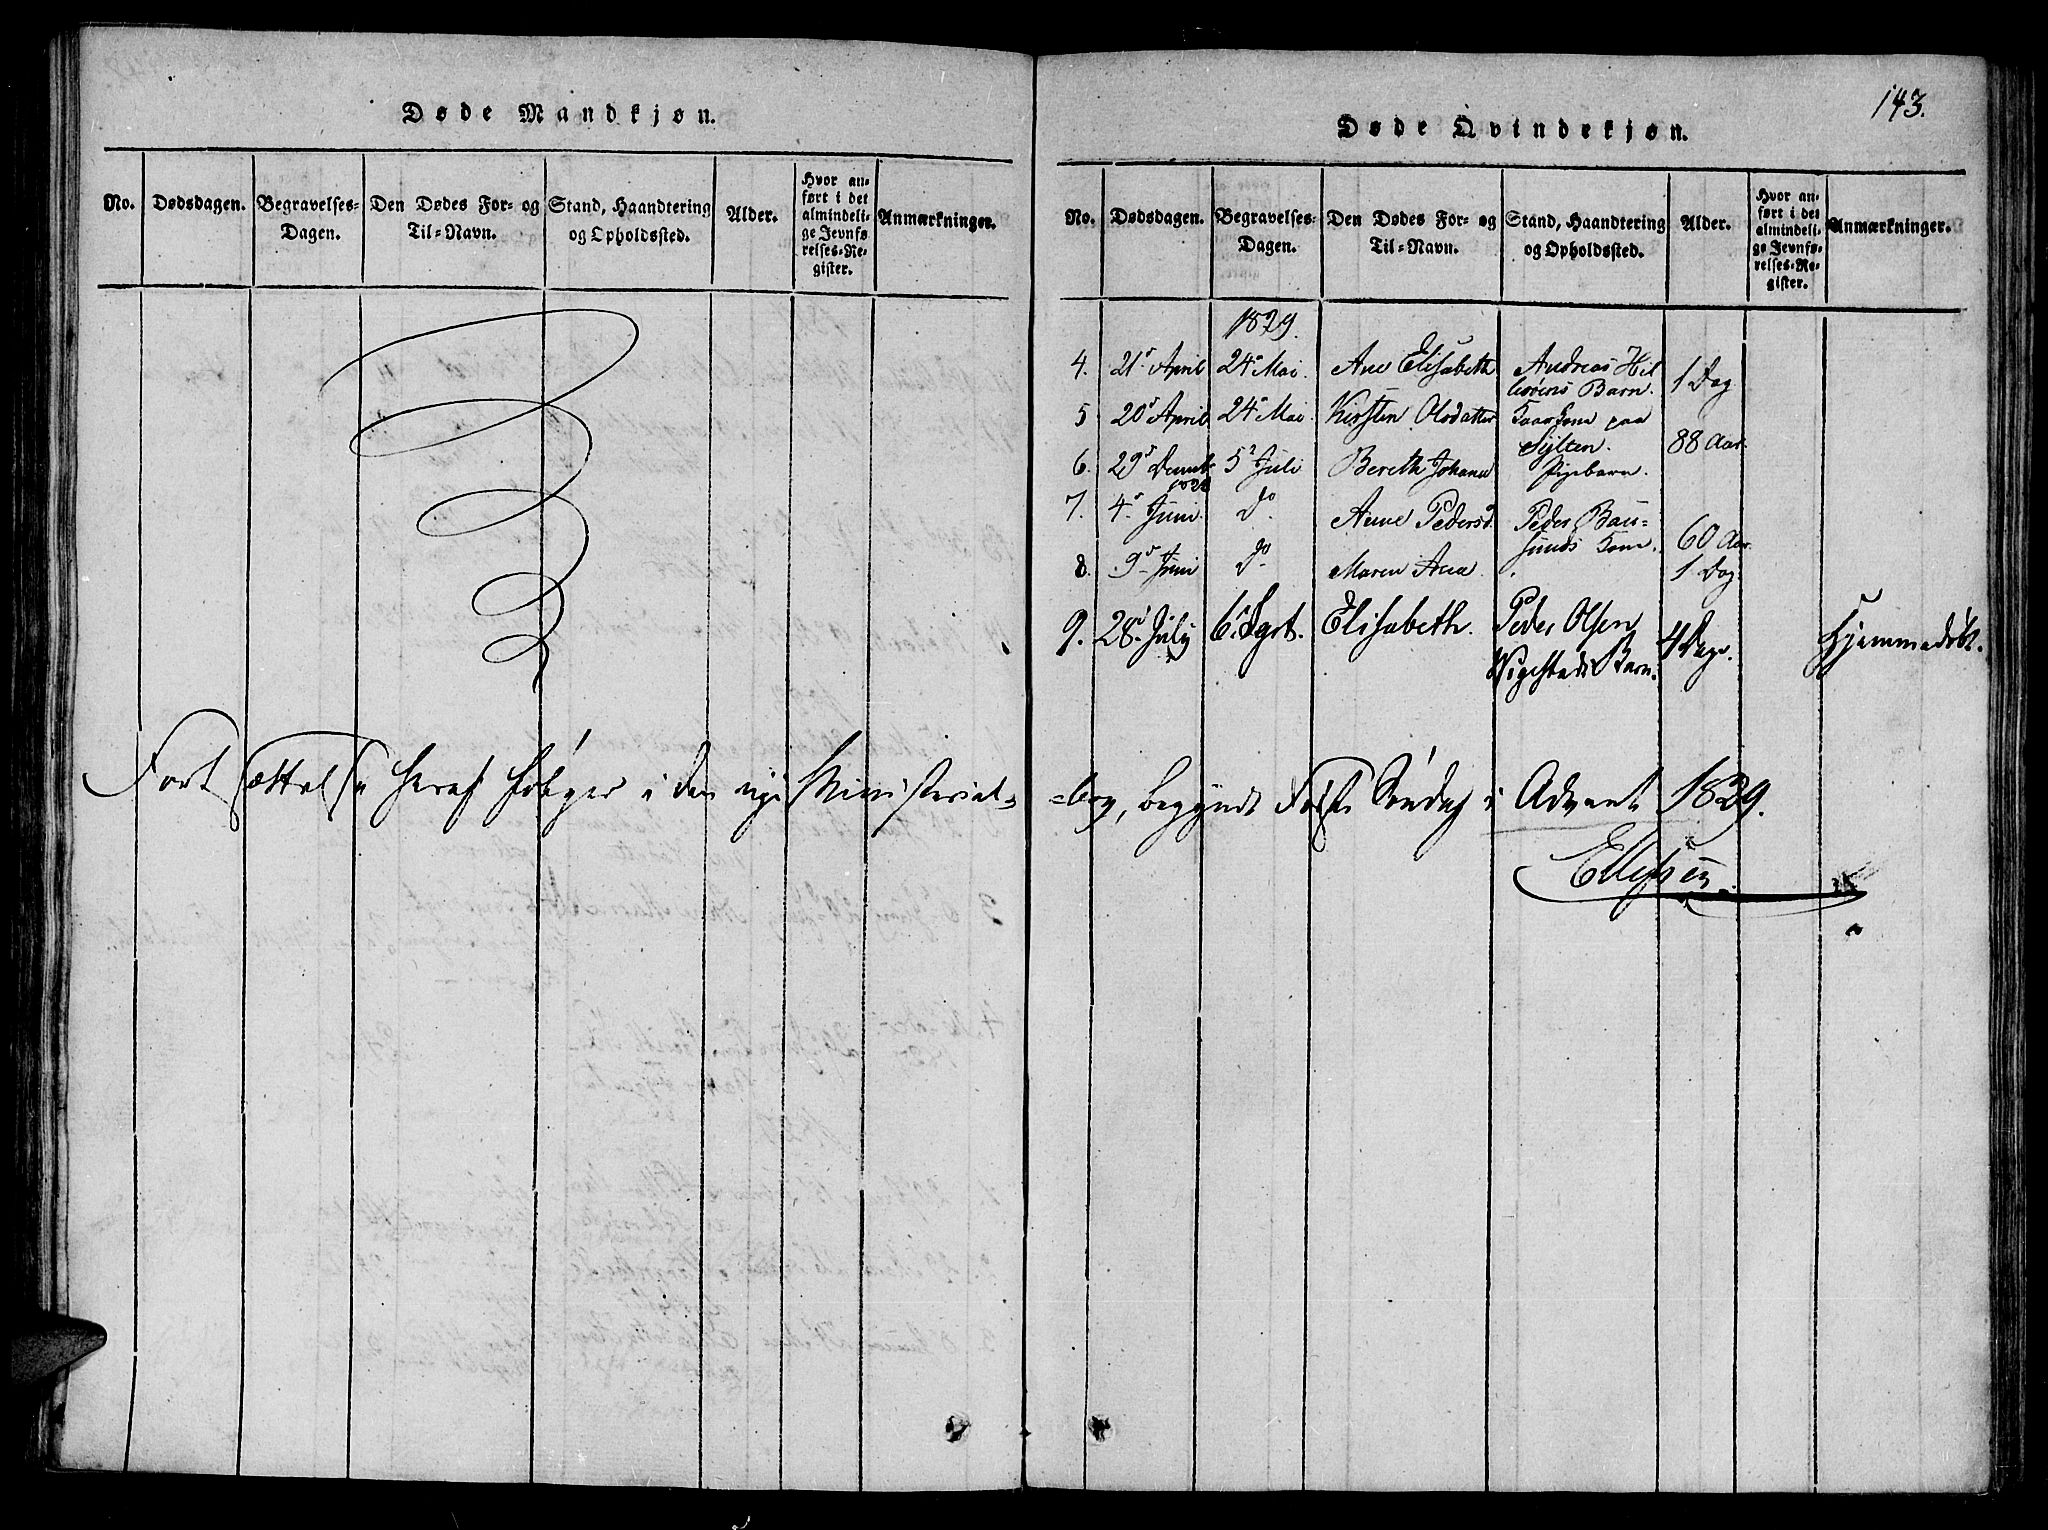 143.
Døde Mandkjøn.
No. Dødsdagen. Begravelses-Dagen. Den Dødes For- og Til-Navn. Stand, Haandtering og Opholdssted. Alder. Hvor anført i det almindelige Jevnførelses-Register. Anmærkninger.
Døde Qvindekjøn.
No. Dødsdagen. Begravelses-Dagen. Den Dødes For- og Til-Navn. Stand, Haandtering og Opholdssted. Alder. Hvor anført i det almindelige Jevnførelses-Register. Anmærkninger.
1829.
4. 21 April 24 Mai. Ane Elisabeth Andreas
Barn. 1 Dag
5 20 April 24 Mai. Kirsten Olsdatter Kaarkone paa
Sylten. 88 Aar.
6. 29 Decemb. 1828 5 Juli Bereth Johana Pigebarn.
7. 4 Juni. do Anne Pedersd. Peder Bau=
sunds Kone. 60 Aar.
8. 9 Juni do Maren Ana. 1 Dag.
9. 28 July 6 Sept. Elisabeth. Peder Olsen
Barn. 4 Dage. Hjemmedøbt.
Fortsættelse heraf følger i den nye Ministerial=
=bog, begyndt Første Søndag i Advent 1829.
Ellefsen